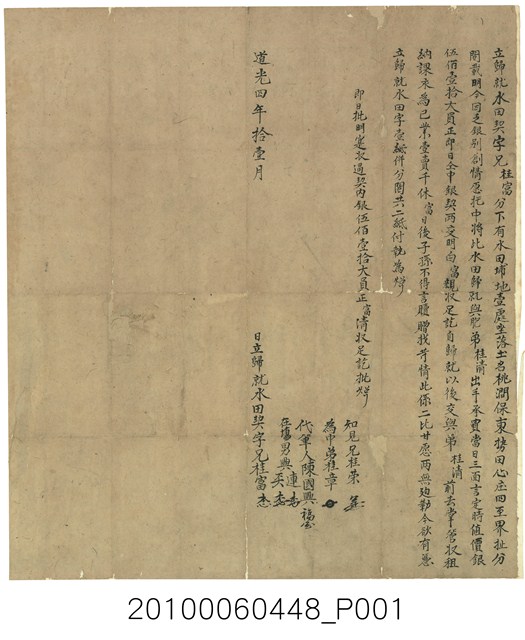 立歸就水田契字兄桂富分下有水田埔地壹處坐落土名桃澗保東勢田心庄四至界址分
開載明今因乏銀別創情愿托中將此水田歸就與胞弟桂清出手承買當日三面言定時值價銀
伍佰壹拾大員正即日仝中銀契兩交明白富親收足訖自歸就以後交與弟桂清前去掌管收租
納課永為己業壹賣千休富日後子孫不得言贖贈找等情此係二比甘愿兩無廹勒今欲有憑
立歸就水田字壹紙併分關共二紙付執為炤
即日批明寔收過契內銀伍佰壹拾大員正富清收足訖批炤
知見兄桂榮
為中弟桂章
代筆人陳國興
在塲男興連
道光四年拾壹月
日立歸就水田契字兄桂富
20100060448_P001